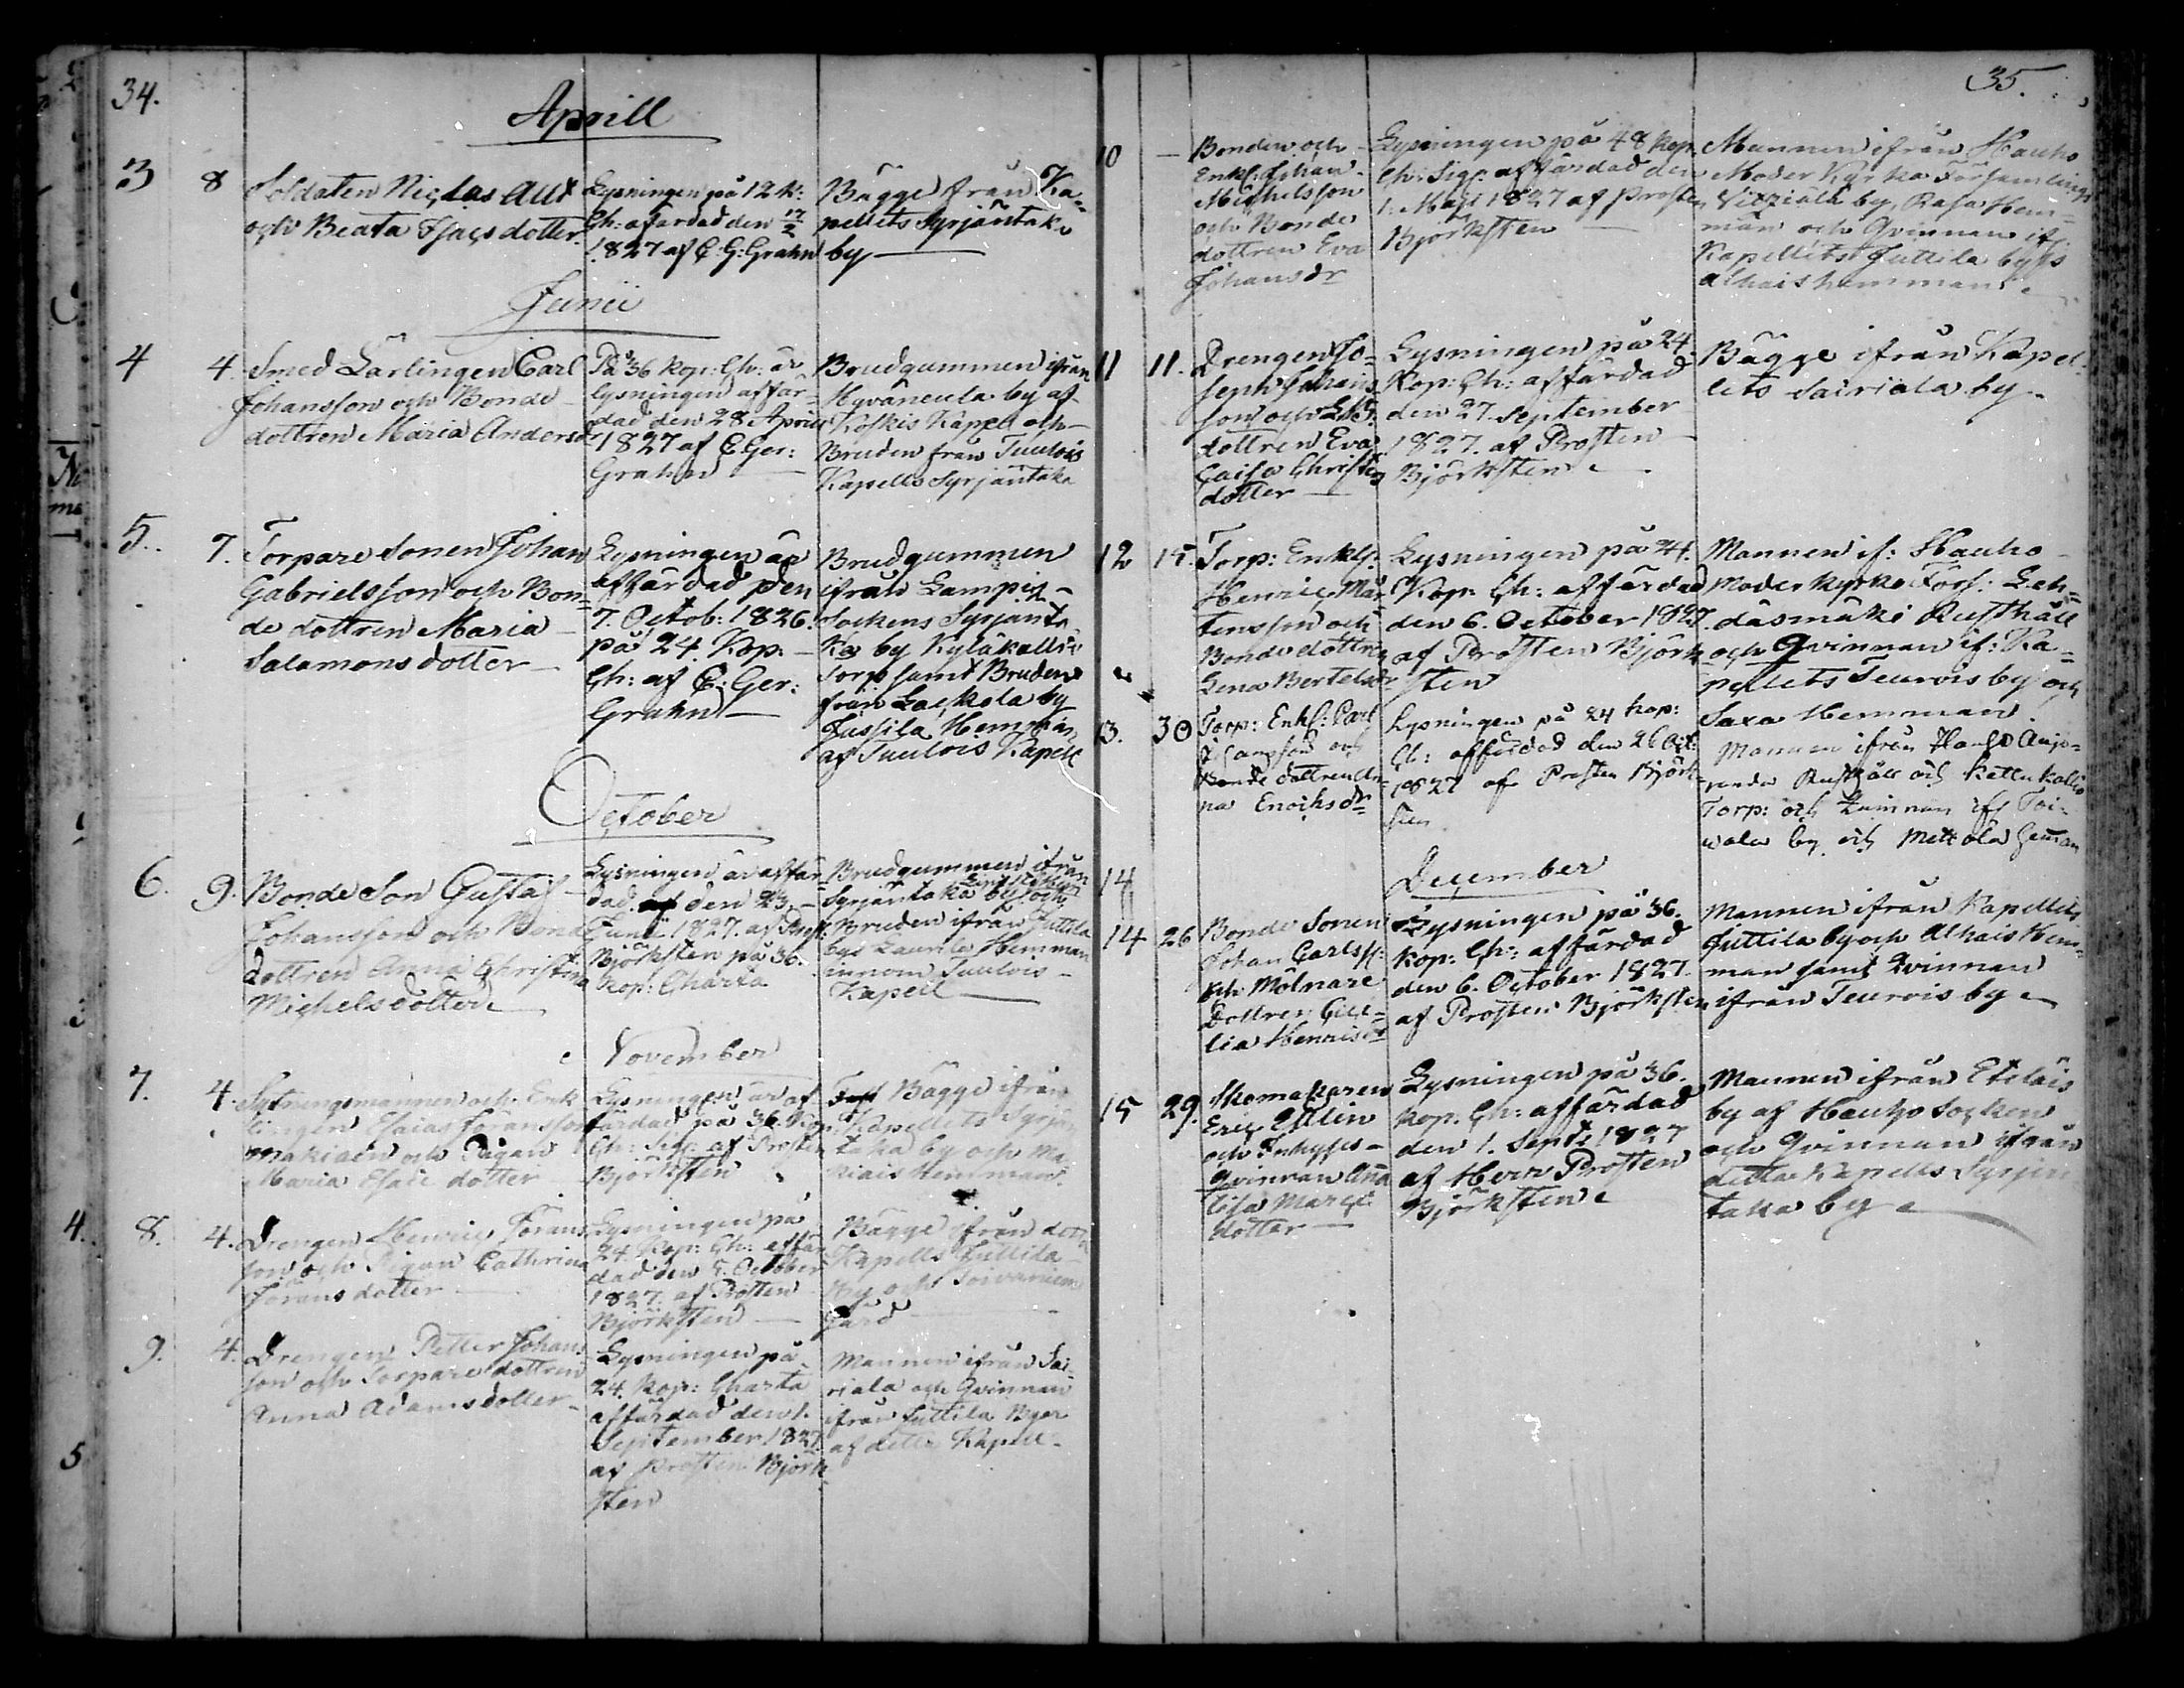 34.
Aprill
3 8
Soldaten Niclas Allt
och Beata Isacsdotter
Lysningen på 12 k:
Ch: afärdad den 17/2
1827 af C: G: Grahn
Bägge från Ka=
pellets Syrjäntaka
by
Junii
4 4.
Smed Lärlingen Carl
Johansson och Bonde
dottren Maria Andersdr
På 36 kop: Ch: är
lysningen affär=
dad den 28 Aprill
1827 af C Ger:
Grahn
Brudgummen ifrån
Hyväneula by af
Koskis Kapell och
Bruden från Tuulois
Kapells Syrjäntaka
5. 7.
Torpare Sonen Johan
Gabrielsson och Bon=
de dottren Maria
Salamons dotter
Lysningen är
affärdad den
7. Octob: 1826.
på 24. Kop:
Ch: af C: Ger:
Grahn
Brudgummen
ifrån Lampis
Sockens Syrjänta
ka by Kyläkallio
Torp samt Bruden
från Lackola by
Jussila Hemman
af Tuulois Kapell
October
6. 9.
Bonde Son Gustaf
Johansson och Bonde
dottren Anna Christina
Michelsdotter
Lysningen är affär=
dad den 23.
Junii 1827. af Prost:
Björksten på 36.
kop: Charta
Brudgummen ifrån
Syrjäntaka by och
Bruden ifrån Juttila
bys Laurila Hemman
innom Tuulois
Kapell
November
7. 4.
Sytningsmannen och Enk
lingen Esaias Göransson
Makiain och Pigan
Maria Esaie dotter
Lysningen är af
färdad på 36. Kop.
Ch: Sig: af Prosten
Björksten
Bägge ifrån
Kapellets Syrjän
taka by och Mä
kiais Hemman.
8. 4.
Drengen Henric Görans
son och Pigan Cathrina
Görans dotter
Lysningen på
24. Kop: Ch: affär
dad den 7. October
1827. af Prosten
Björksten
Bägge ifrån detta
Kapells Juttila
by och Soivaniemi
gård
9. 4.
Drengen Petter Johans
son och Torpare dottren
Anna Adamsdotter
Lysningen på
24. Kop: Charta
affärdad den 1.
September 1827.
af Prosten Björk
sten
Mannen ifrån Sai=
riala och Qvinnan
ifrån Juttila Byar
af detta Kapell.
35.
10
Bonden och
Enkl: Johan
Michelsson
och Bonde
dottren Eva
Johansdr
Lysningen på 48 kop.
Ch: Sig: affärdad den
1. Maji 1827 af Prosten
Björksten
Mannen ifrån Hauho
Moder Kyrko Församlings
Vitziälä by, Rasa Hem=
man och Qvinnan if.
Kapellets Juttila bys
Alhais hemman
11 11.
Drengen Jo=
seph Johans
son och
dottren Eva
Caisa Christers
dotter
Lysningen på 24
Kop: Ch: affärdad
den 27. September
1827. af Prosten
Björksten
Bägge ifrån Kapel
lets Sairiala by
12 15.
Torp: Enkl:
Henric Mår
tensson och
Bonde dottren
Lena Bertelsdr
Lysningen på 24.
Kop: Ch: affärdad
den 6. October 1827
af Prosten Björk
sten
Mannen if: Hauho
Moder kyrko Förs: Leh=
däsmäki Rusthåll
och Qvinnan if: Ka=
pellets Teurois by och
Saxa Hemman
13. 30
Torp: Enkl: Carl
Johansson och
Bonde dottren An=
na Enochsdr
Lysningen på 24 kop:
Ch: affärdad den 26 Oct:
1827 af Prosten Björk=
sten
Mannen ifrån Hauho
Rusthåll och Kallio
Torp: och Qvinnan if: Toi=
wala by och Mettola Heman
14
December
14 26
Bonde Sonen
Johan Carlss:
och Mölnare
Dottren Ceci=
lia Henricsdr
Lysningen på 36.
kop: Ch: affärdad
den 6. October 1827.
af Prosten Björksten
Mannen ifrån Kapellets
Juttila by och Alhais Hem=
man samt Qvinnan
ifrån Teurois by
15 29.
Skomakaren
Eric Utlin
och Inhyses
Qvinnan Anna
Lisa Marci
dotter
Lysningen på 36.
kop: Ch: affärdad
den 1. Septe 1827
af Herr Prosten
Björksten
Mannen ifrån Eteläis
by af Hauho Socken
och Qvinnan ifrån
detta Kapells Syrjän
taka by
4.
5